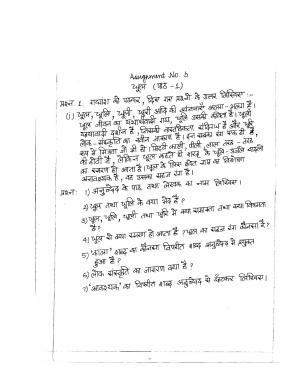 Assignment No. 5
धूल (पाठ - 1)
प्रश्न 1. गद्यांश को पढ़कर, दिए गए प्रश्नों के उत्तर लिखिए :-
(i) धूल, धूलि, धूली, धूरि आदि की व्यंजनाएँ अलग-अलग हैं।
धूल जीवन का यथार्थवादी गद्य, धूलि उसकी कविता है। धूली
छायावादी दर्शन है, जिसकी वास्तविकता संदिग्ध है और धूरि
लोक-संस्कृति का नवीन जागरण है। इन सबका रंग एक ही है,
रूप में भिन्नता जो भी हो। मिट्टी काली, पीली, लाल तरह-तरह
की होती है, लेकिन धूल कहते ही शरद के धुले-उजले बादलों
का स्मरण हो आता है। धूल के लिए श्वेत नाम का विशेषण
अनावश्यक है, वह उसका सहज रंग है।
प्रश्न: 1) अनुच्छेद के पाठ तथा लेखक का नाम लिखिए।
2) धूल तथा धूलि में क्या भेद है?
3) धूल, धूलि, धूली तथा धूरि में क्या समानता तथा क्या भिन्नता
है?
4) धूल से क्या स्मरण हो आता है? धूल का सहज रंग कौनसा है?
5) 'काला' शब्द का कौनसा विपरीत शब्द अनुच्छेद में प्रयुक्त
हुआ है?
6) लोक संस्कृति का जागरण क्या है?
7) 'आवश्यक' का विपरीत शब्द अनुच्छेद से ढूँढकर लिखिए।